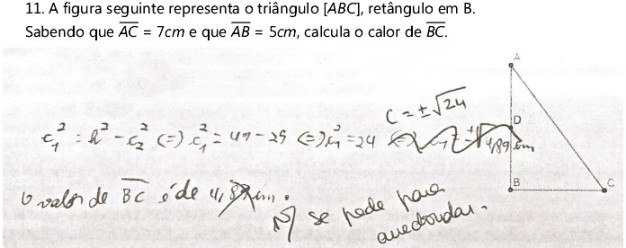 11. A figura seguinte representa o triângulo [ABC], retângulo em B.
Sabendo que AC = 7cm e que AB = 5cm, calcula o calor de BC.
A
c = ±√24
D
c₁² = h² - c₂² (=) c₁² = 49 - 25 (=) c₁² = 24 4,89 cm
B C
O valor de BC é de 4,
Ñ se pede para
arredondar.